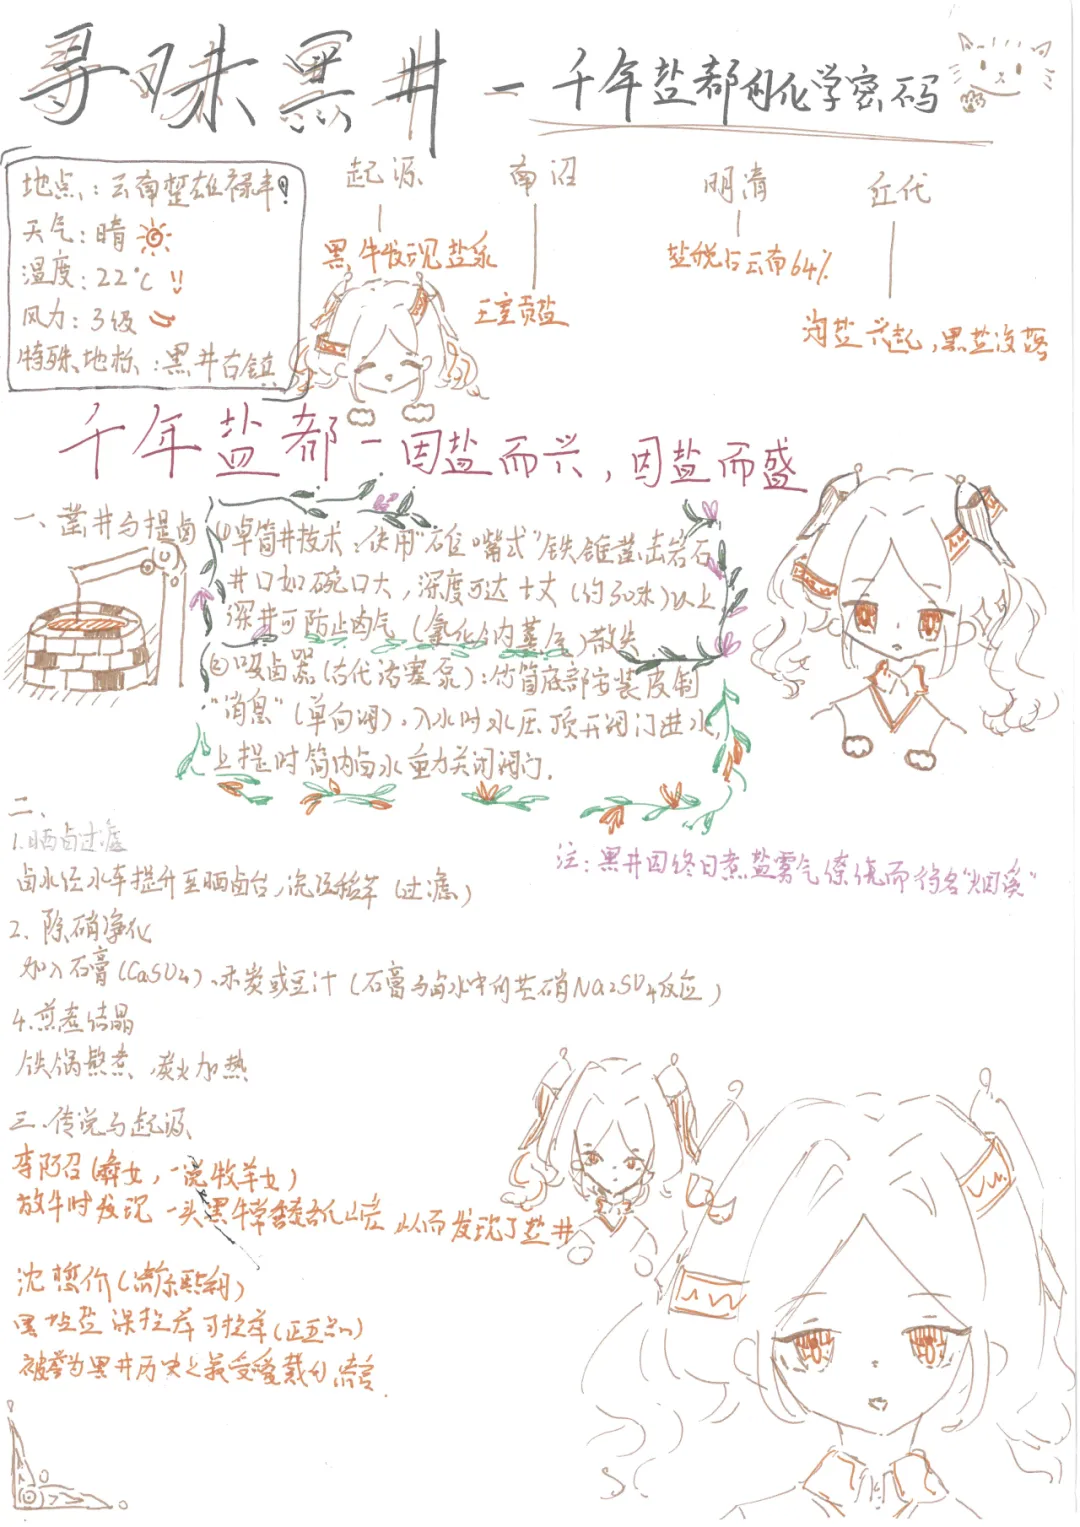 寻味黑井 — 千年盐都的化学密码
地点：云南楚雄禄丰
天气：晴
温度：22℃
风力：3级
特殊地标：黑井古镇
起源
黑牛发现盐泉
南诏
王室贡盐
明清
盐税占云南64%
近代
海盐兴起，黑盐没落
千年盐都 — 因盐而兴，因盐而盛
一、凿井与提卤
(1)卓筒井技术：使用"嘴式"铁锥凿击岩石
井口如碗口大，深度可达十丈（约30米）以上
深井可防止卤气（氯化钠蒸层）散失
(2)吸卤器（古代活塞泵）：竹筒底部安装皮制
"消息"（单向阀），入水时水压顶开阀门进水，
上提时筒内卤水重力关闭阀门．
二、
1.晒卤过滤
卤水经水车提升至晒卤台，浇经稻草（过滤）
注：黑井因终日煮盐雾气缭绕而得名"烟溪"
2、除硝净化
加入石膏(CaSO4)、木炭或豆汁（石膏与卤水中的芒硝Na2SO4反应）
4.煎煮结晶
铁锅熬煮，炭火加热
三、传说与起源
李阿召（彝女，一说牧羊女）
放牛时发现一头黑牛常舔 从而发现了盐井
沈懋价（清康熙朝）
黑盐
被誉为黑井历史上最受爱戴的